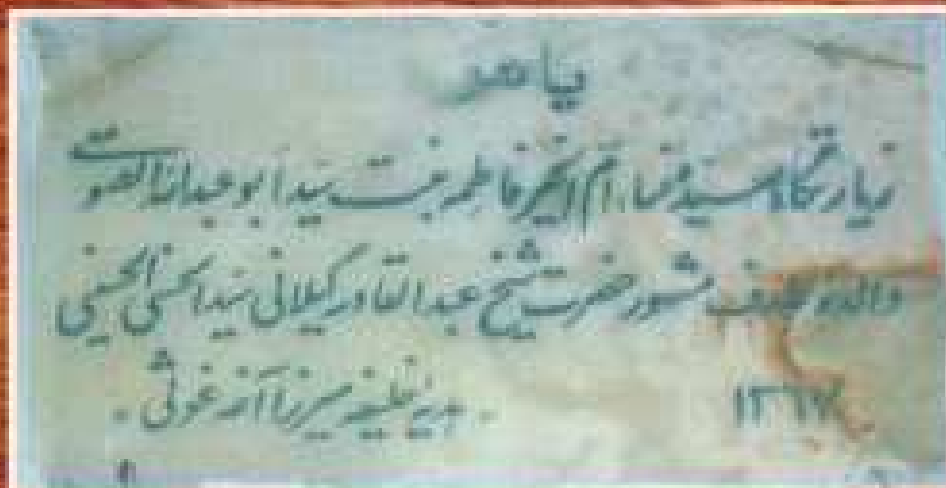 یا هو
زیارتگاه سیده نساء ام الخیر فاطمه بنت سید ابو عبدالله الصومعی
والده عارف مشهور حضرت شیخ عبدالقادر گیلانی سید الحسنی الحسینی
۱۳۶۷ - هدیه خلیفه میرزا آغه غوثی -